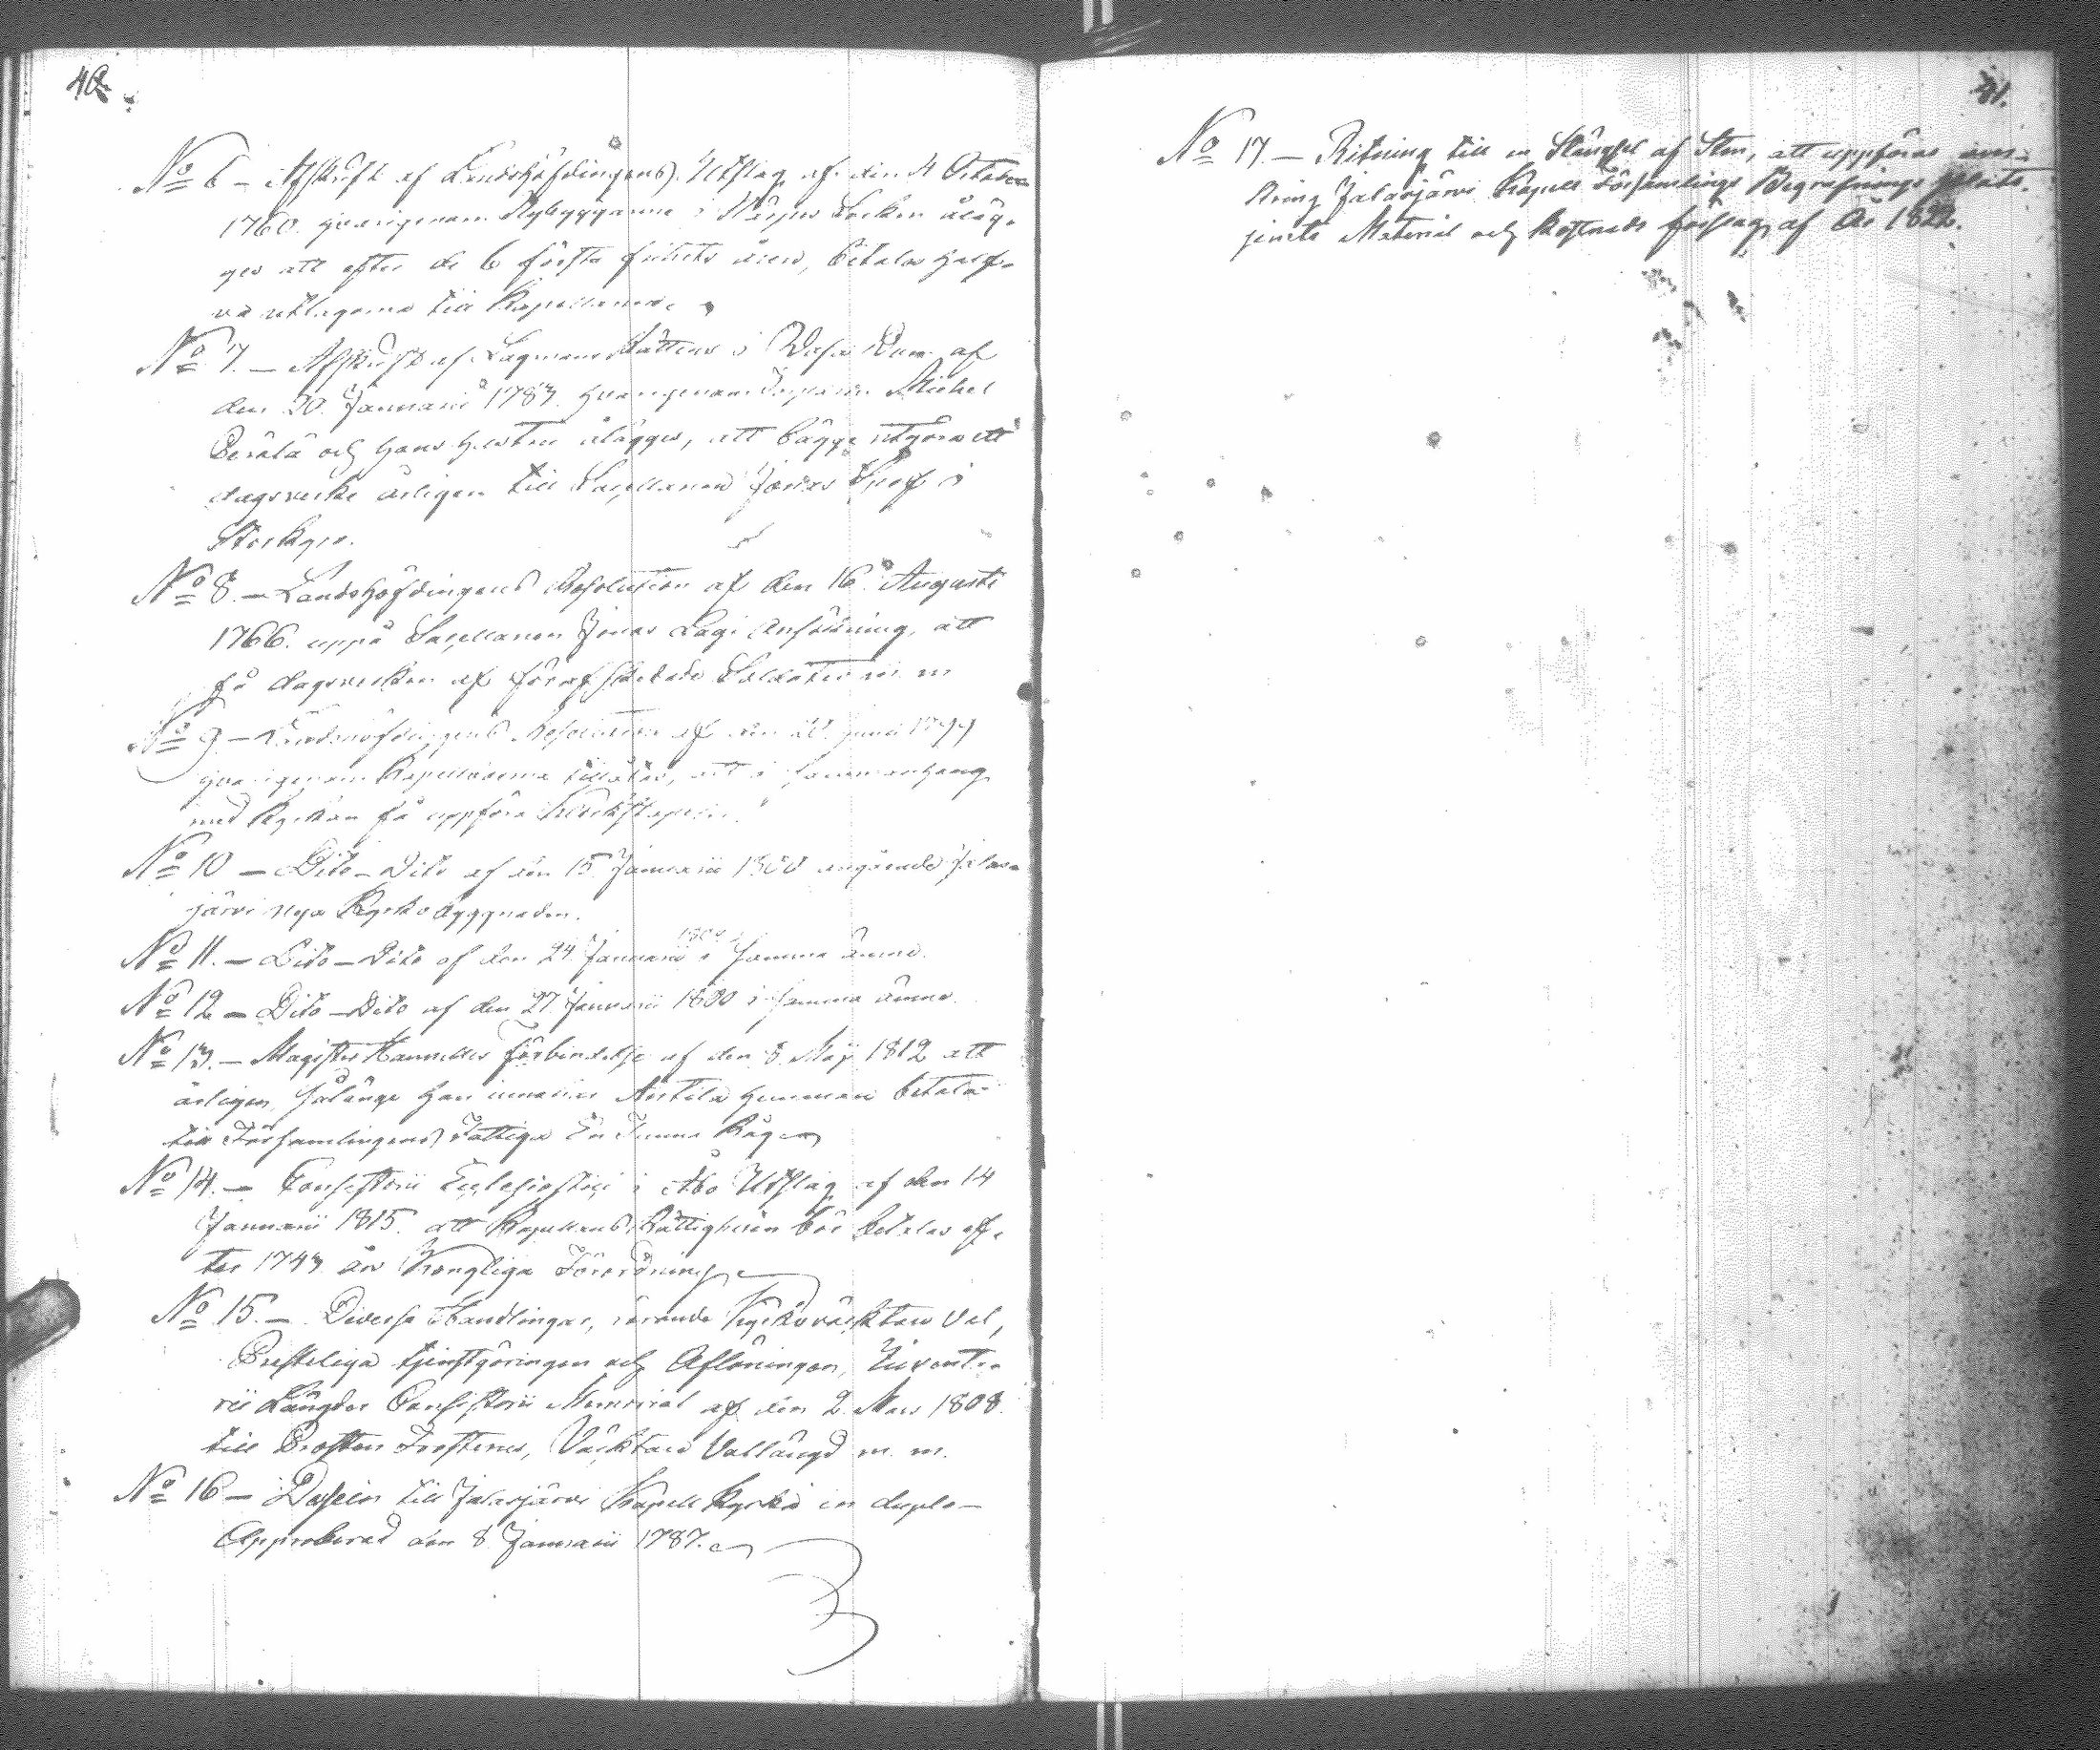 40.
No 6 – Afskrift af Landshöfdingens Utslag af den 4 October
1760. hvarigenom Nybyggarne i Socken åläg-
ges att efter de 6 första frihets åren, betala half-
va utlagorna till Kapellanen.
No 7. – Afskrift af Lagmans Rättens i Wasa Dom af
den 20 Januarii 1783. hvarigenom Michel
Perälä och hans hustru ålägges, att bägge utgöra ett
dagsverke årligen till Sacellanen Jonas i
Storkyro.
No 8. – Landshöfdingens Resolution af den 16 Augusti
1766. uppå Sacellanen Jonas Lagi Ansökning, att
få dagsverken af förafskedade Soldater m m
No 9 – Landshöfdingens Resolution af den Junii 1799
hvarigenom Kapellboerne tillåtes, att i sammanhang
med Kyrkan få uppföra Klockstapeln.
No 10 – Dito – Dito af den 15 Januarii 1800 angående Jalas-
järvi nya Kyrkobyggnaden.
No 11. – Dito – Dito af den 24 Januarii 1800 i samma ämne.
No 12 – Dito – Dito af den 27 Januarii 1800 i samma ämne.
No 13. – Magister Förbindelse af den 8 Maji 1812 att
årligen, sålänge han innehar Anttila hemman betala
till Församlingens Fattiga En Tunna Råg
No 14. – Consistorii Ecclesiastici i Åbo Utslag af den 14
Januarii 1815. att Kapellans Rättigheten bör betalas ef-
ter 1743 års Kongliga Förordning
No 15. – Diverse Handlingar, rörande Kyrkoväcktare Val,
Presteliga tjenstgöringen och Aflöningen, Invent-
rii Längder Consistorii Memorial af den 2 Mars 1808.
till Prosten Frosterus, Väcktare Vallängd m. m.
No 16 – Dessein till Jalasjärvi Kapell Kyrka in duplo –
Approberad den 8 Januarii 1787.
41.
No 17. – Ritning till en Stängsel af Sten, att uppföras om-
kring Jalasjärvi Kapell Församlings Begrafnings plats.
jemte Material och Kostnads förslag, af År 1822.